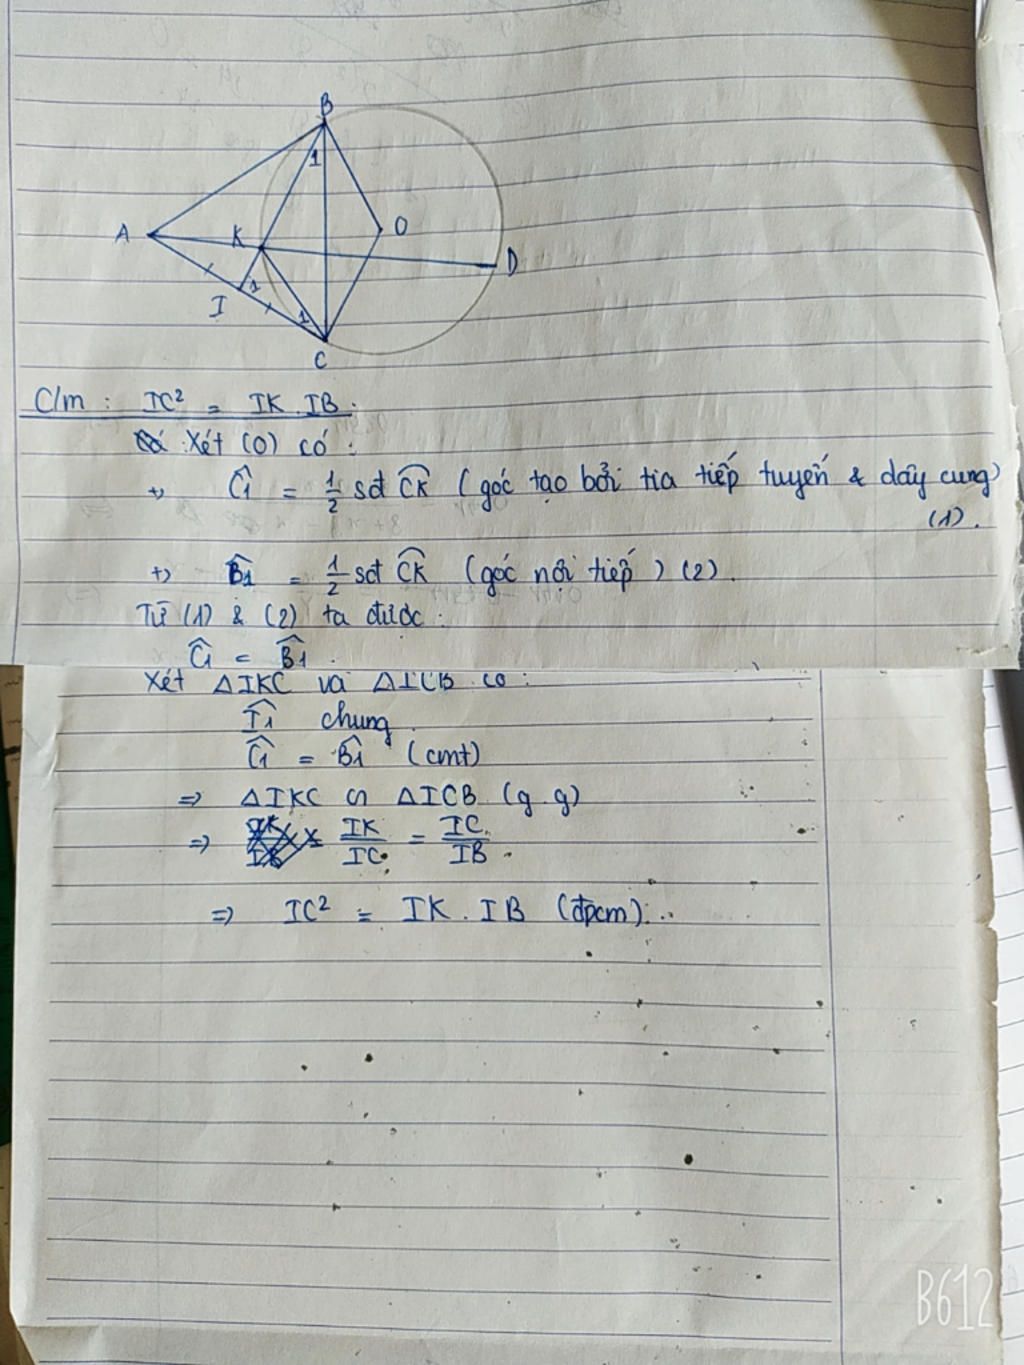 B
1
A
K
O
D
I
1
1
C
C/m : IC² = IK . IB.
Xét (O) có :
+, Ĉ1 = 1/2 sđ CK (góc tạo bởi tia tiếp tuyến & dây cung)
(1).
+, B̂1 = 1/2 sđ CK (góc nội tiếp) (2).
Từ (1) & (2) ta được :
Ĉ1 = B̂1 .
Xét △IKC và △ICB có :
Î1 chung
Ĉ1 = B̂1 (cmt)
=> △IKC ∽ △ICB (g.g)
=> IK/IC = IC/IB .
=> IC² = IK . IB (đpcm).
B612